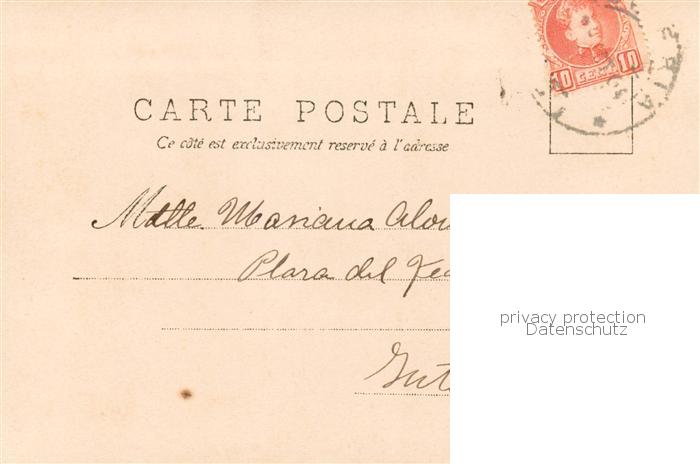 10 CENT 10
CARTE POSTALE
Ce côté est exclusivement reservé à l'adresse
Mdlle. Mariana
Plaza del
privacy protection
Datenschutz